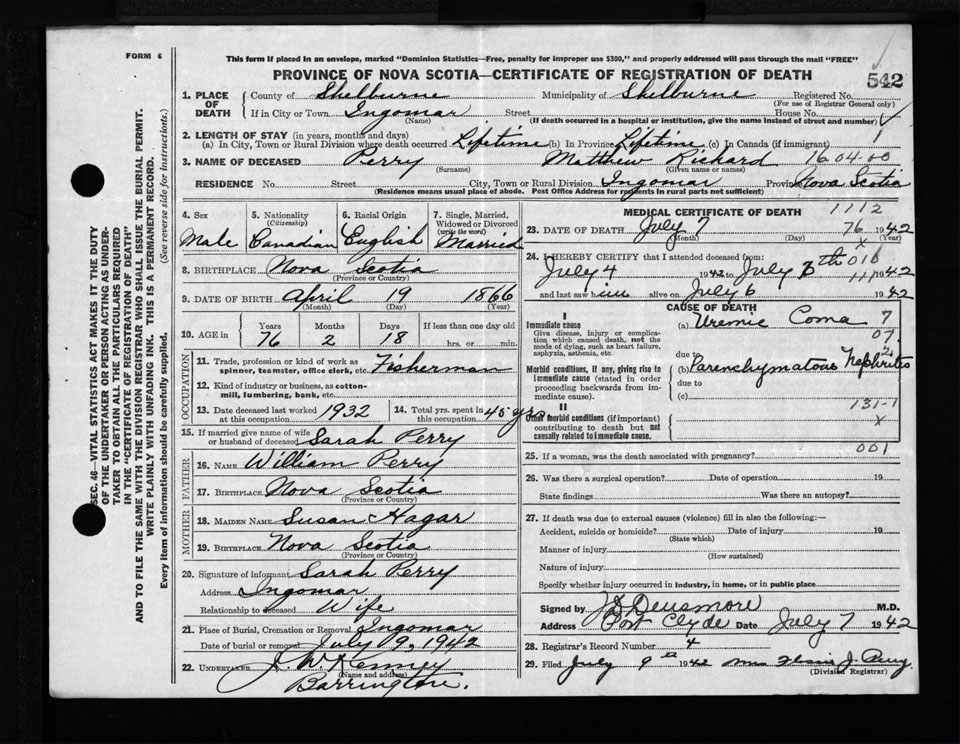 FORM 6
This form if placed in an envelope, marked "Dominion Statistics—Free, penalty for improper use $300," and properly addressed will pass through the mail "FREE"
PROVINCE OF NOVA SCOTIA—CERTIFICATE OF REGISTRATION OF DEATH
542
1. PLACE OF DEATH
County of Shelburne Municipality of Shelburne Registered No.
(For use of Registrar General only)
If in City or Town Ingomar Street House No.
(Name) (If death occurred in a hospital or institution, give the name instead of street and number)
2. LENGTH OF STAY (in years, months and days)
(a) In City, Town or Rural Division where death occurred Lifetime (b) In Province Lifetime (c) In Canada (if immigrant)
3. NAME OF DECEASED Perry Matthew Richard 16 04.00
(Surname) (Given name or names)
RESIDENCE No. Street City, Town or Rural Division Ingomar Province Nova Scotia
(Residence means usual place of abode. Post Office Address for residents in rural parts not sufficient)
4. Sex
Male
5. Nationality
(Citizenship)
Canadian
6. Racial Origin
English
7. Single, Married, Widowed or Divorced
(write the word)
Married
8. BIRTHPLACE Nova Scotia
(Province or Country)
9. DATE OF BIRTH April 19 1866
(Month) (Day) (Year)
10. AGE in
Years Months Days If less than one day old
76 2 18 hrs. or min.
OCCUPATION
11. Trade, profession or kind of work as
spinner, teamster, office clerk, etc. Fisherman
12. Kind of industry or business, as cotton-
mill, lumbering, bank, etc.
13. Date deceased last worked at this occupation 1932
14. Total yrs. spent in this occupation 45 yrs
15. If married give name of wife
or husband of deceased Sarah Perry
FATHER
16. NAME William Perry
17. BIRTHPLACE Nova Scotia
(Province or Country)
MOTHER
18. MAIDEN NAME Susan Hagar
19. BIRTHPLACE Nova Scotia
(Province or Country)
20. Signature of informant Sarah Perry
Address Ingomar
Relationship to deceased Wife
21. Place of Burial, Cremation or Removal Ingomar
Date of burial or removal July 9, 1942
22. UNDERTAKER J. W. Kenney
(Name and address)
Barrington.
MEDICAL CERTIFICATE OF DEATH 1112
23. DATE OF DEATH July 7 76 1942
(Month) (Day) (Year)
24. I HEREBY CERTIFY that I attended deceased from:
July 4 1942 to July 1942
and last saw him alive on July 6 1942
CAUSE OF DEATH
I
Immediate cause
Give disease, injury or complication which caused death, not the mode of dying, such as heart failure, asphyxia, asthenia, etc.
(a) Uremic Coma 7
07
due to 2
Morbid conditions, if any, giving rise to immediate cause (stated in order proceeding backwards from immediate cause).
(b) Parenchymatous Nephritis
due to
(c)
II
131-1
Other morbid conditions (if important) contributing to death but not causally related to immediate cause.
x
25. If a woman, was the death associated with pregnancy? 001
26. Was there a surgical operation? Date of operation 19
State findings Was there an autopsy?
27. If death was due to external causes (violence) fill in also the following:—
Accident, suicide or homicide? Date of injury 19
(State which)
Manner of injury
(How sustained)
Nature of injury
Specify whether injury occurred in industry, in home, or in public place
Signed by J D Densmore M.D.
Address Port Clyde Date July 7 1942
28. Registrar's Record Number 4
29. Filed July 9th 1942 Mrs J. Perry
(Division Registrar)
SEC. 46—VITAL STATISTICS ACT MAKES IT THE DUTY
OF THE UNDERTAKER OR PERSON ACTING AS UNDER-
TAKER TO OBTAIN ALL THE PARTICULARS REQUIRED
IN THE "CERTIFICATE OF REGISTRATION OF DEATH"
AND TO FILE THE SAME WITH THE DIVISION REGISTRAR WHO SHALL ISSUE THE BURIAL PERMIT.
WRITE PLAINLY WITH UNFADING INK. THIS IS A PERMANENT RECORD.
Every item of information should be carefully supplied. (See reverse side for instructions.)